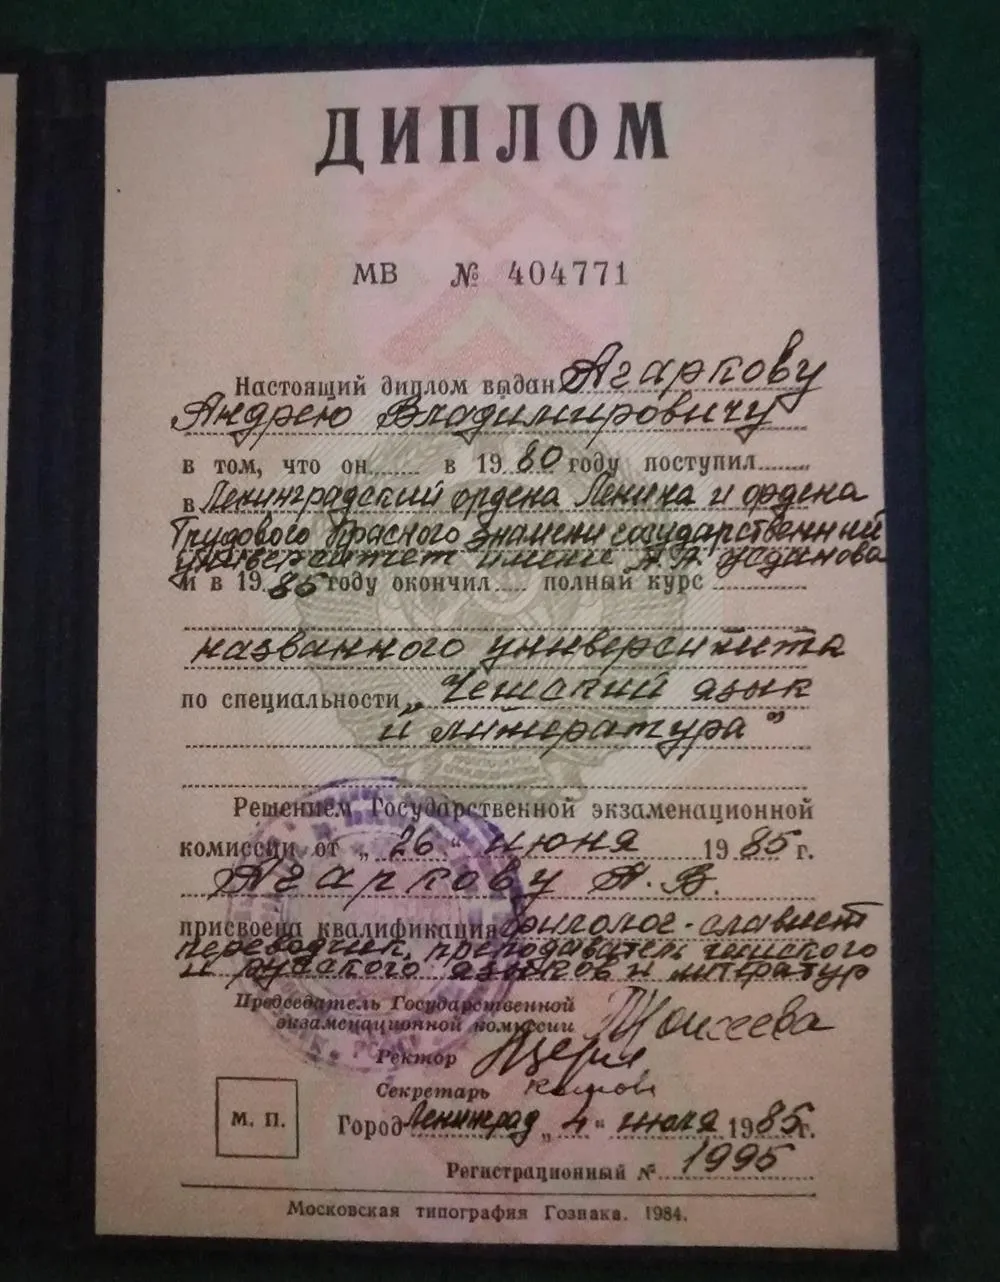 ДИПЛОМ
МВ № 404771
Настоящий диплом выдан Агаркову
Андрею Владимировичу
в том, что он в 1980 году поступил
в Ленинградский ордена Ленина и ордена
Трудового Красного Знамени государственный
университет имени А.А. Жданова
и в 1985 году окончил полный курс
названного университета
по специальности „Чешский язык
и литература"
Решением Государственной экзаменационной
комиссии от „26" июня 1985 г.
Агаркову А.В.
присвоена квалификация филолог-славист
переводчик, преподаватель чешского
и русского языков и литератур
Председатель Государственной
экзаменационной комиссии Моисеева
Ректор
Секретарь
М. П.
Город Ленинград „4" июля 1985г.
Регистрационный № 1995
Московская типография Гознака. 1984.